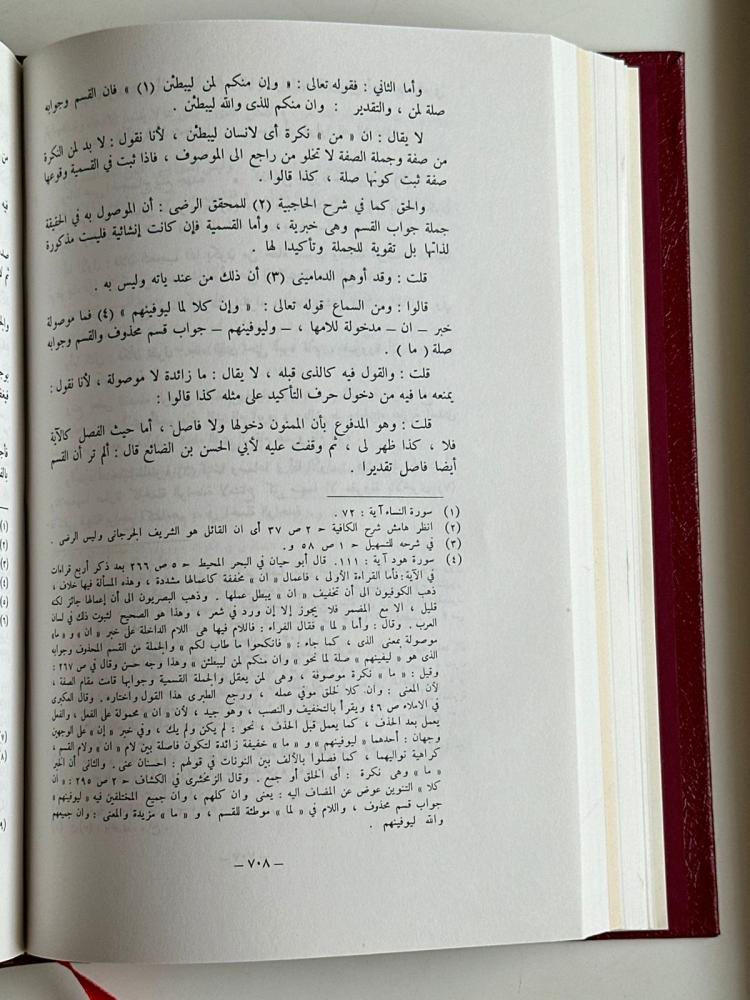 وأما الثاني : فقوله تعالى : « وإن منكم لمن ليبطئن (١) » فان القسم وجوابه
صلة لمن ، والتقدير : وان منكم للذى والله ليبطئن .
لا يقال : ان « من » نكرة أى لانسان ليبطئن ، لأنا نقول : لا بد لمن النكرة
من صفة وجملة الصفة لا تخلو من راجع الى الموصوف ، فاذا ثبت في القسمية وقوعها
صفة ثبت كونها صلة ، كذا قالوا .
والحق كما في شرح الحاجبية (٢) للمحقق الرضى : أن الموصول به في الحقيقة
جملة جواب القسم وهى خبرية ، وأما القسمية فإن كانت إنشائية فليست مذكورة
لذاتها بل تقوية للجملة وتأكيدا لها .
قلت : وقد أوهم الدمامينى (٣) أن ذلك من عند ياته وليس به .
قالوا : ومن السماع قوله تعالى : « وإن كلا لما ليوفينهم » (٤) فما موصولة
خبر ـ ان ـ مدخولة للامها ، ـ وليوفينهم ـ جواب قسم محذوف والقسم وجوابه
صلة ( ما ) .
قلت : والقول فيه كالذى قبله ، لا يقال : ما زائدة لا موصولة ، لأنا نقول :
يمنعه ما فيه من دخول حرف التأكيد على مثله كذا قالوا :
قلت : وهو المدفوع بأن الممنون دخولها ولا فاصل ، أما حيث الفصل كالآية
فلا ، كذا ظهر لى ، ثم وقفت عليه لأبي الحسن بن الضائع قال : ألم تر أن القسم
أيضا فاصل تقديرا .
(١) سورة النساء آية : ٧٢ .
(٢) انظر هامش شرح الكافية حـ ٢ ص ٣٧ أى ان القائل هو الشريف الجرجاني وليس الرضى .
(٣) في شرحه للتسهيل حـ ١ ص ٥٨ و.
(٤) سورة هود آية : ١١١. قال أبو حيان في البحر المحيط حـ ٥ ص ٢٦٦ بعد ذكر أربع قراءات
في الآية: فأما القراءة الأولى ، فاعمال « ان » مخففة كاعمالها مشددة ، وهذه المسألة فيها خلاف ،
ذهب الكوفيون الى أن تخفيف « ان » يبطل عملها . وذهب البصريون الى أن إعمالها جائز لكنه
قليل ، الا مع المضمر فلا يجوز إلا إن ورد في شعر ، وهذا هو الصحيح لثبوت ذلك في لسان
العرب . وقال : وأما « لما » فقال الفراء : فاللام فيها هى اللام الداخلة على خبر « ان » و « ما»
موصولة بمعنى الذى ، كما جاء : « فانكحوا ما طاب لكم » والجملة من القسم المحذوف وجوابه
الذى هو « ليفينهم » صلة لما نحو « وان منكم لمن ليبطئن » وهذا وجه حسن وقال في ص ٢٦٧ :
وقيل : « ما » نكرة موصوفة ، وهى لمن يعقل والجملة القسمية وجوابها قامت مقام الصفة ،
لأن المعنى : وان كلا لخلق موفي عمله ، ورجع الطبرى هذا القول واختاره . وقال العكبرى
في الاملاء ص ٤٦ ويقرأ بالتخفيف والنصب ، وهو جيد ، لأن « ان » محمولة على الفعل ، والفعل
يعمل بعد الحذف ، كما يعمل قبل الحذف ، نحو : لم يكن ولم يك ، وفي خبر « إن » على الوجهين
وجهان : أحدهما « ليوفينهم » و « ما » خفيفة زائدة لتكون فاصلة بين لام « ان » ولام القسم ،
كراهية تواليهما ، كما فصلوا بالألف بين النونات في قولهم : احسنان عنى . والثانى أن الخبر
« ما » وهى نكرة : أى الخلق أو جمع . وقال الزمخشرى في الكشاف حـ ٢ ص ٢٩٥ : « ان
كلا » التنوين عوض عن المضاف اليه : يعنى وان كلهم ، وان جميع المختلفين فيه « ليوفينهم »
جواب قسم محذوف ، واللام في « لما » موطئة للقسم ، و « ما » مزيدة والمعنى : وان جميعهم
والله ليوفينهم .
ـ ٧٠٨ ـ